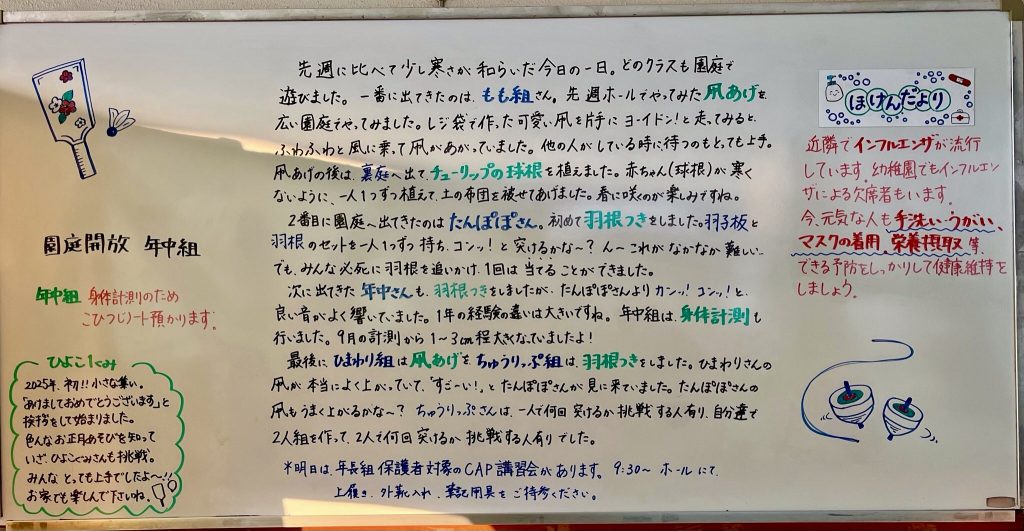 園庭開放 年中組
年中組 身体計測のため
こひつじノート預かります。
ひよこぐみ
2025年、初!!小さな集い。
「あけましておめでとうございます」と
挨拶をして始まりました。
色んなお正月あそびを知って
いざ、ひよこぐみさんも挑戦。
みんな とっても上手でしたよ〜!!
お家でも楽しんで下さいね。
先週に比べて少し寒さが和らいだ今日の一日。どのクラスも園庭で
遊びました。一番に出てきたのは、もも組さん。先週ホールでやってみた凧あげを、
広い園庭でやってみました。レジ袋で作った可愛い凧を片手に ヨーイドン!と走ってみると、
ふわふわと風に乗って凧があがっていました。他の人がしている時に待つのもとても上手。
凧あげの後は、裏庭へ出て、チューリップの球根を植えました。赤ちゃん(球根)が寒く
ないように、一人1つずつ植えて、土の布団を被せてあげました。春に咲くのが楽しみですね。
2番目に園庭へ出てきたのはたんぽぽさん。初めて羽根つきをしました。羽子板と
羽根のセットを一人1つずつ持ち、コンッ!と突けるかな〜?ん〜これがなかなか難しい…
でも、みんな必死に羽根を追いかけ、1回は当てることができました。
次に出てきた年中さんも、羽根つきをしましたが、たんぽぽさんよりカンッ!コンッ!と、
良い音がよく響いていました。1年の経験の違いは大きいですね。年中組は、身体計測も
行いました。9月の計測から1〜3cm程大きくなっていましたよ!
最後にひまわり組は凧あげをちゅうりっぷ組は、羽根つきをしました。ひまわりさんの
凧が本当によく上がっていて、「すごーい!」とたんぽぽさんが見に来ていました。たんぽぽさんの
凧もうまく上がるかな〜?ちゅうりっぷさんは、一人で何回突けるか挑戦する人有り、自分達で
2人組を作って、2人で何回突けるか挑戦する人有りでした。
*明日は、年長組保護者対象のCAP講習会があります。9:30〜 ホールにて、
上履き、外靴入れ、筆記用具をご持参ください。
ほけんだより
近隣でインフルエンザが流行
しています。幼稚園でもインフルエン
ザによる欠席者もいます。
今、元気な人も手洗い・うがい、
マスクの着用、栄養摂取等、
できる予防をしっかりして健康維持を
しましょう。